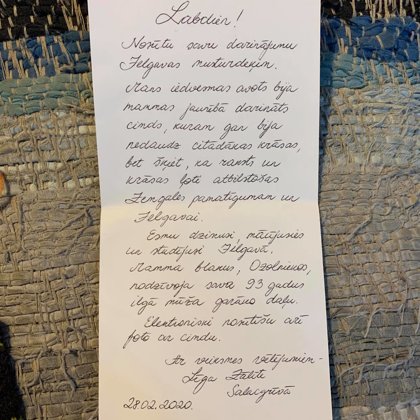 Labdien!
Nosūtu savu darinājumu
Jelgavas muzturdeķim.
Mans iedvesmas avots bija
mammas jaunībā darināts
cimds, kuram gan bija
nedaudz citādākas krāsas,
bet šķiet, ka raksti un
krāsas ļoti atbilstošas
Zemgales pamatīgumam un
Jelgavai.
Esmu dzimusi, mācījusies
un studējusi Jelgavā.
Mamma blakus, Ozolniekos,
nodzīvoja sava 93 gadus
ilgā mūža garāko daļu.
Elektroniski nosūtīšu arī
foto ar cimdu.
Ar veiksmes vēlējumiem -
Zālīte
Salacgrīvā
28.02.2020.